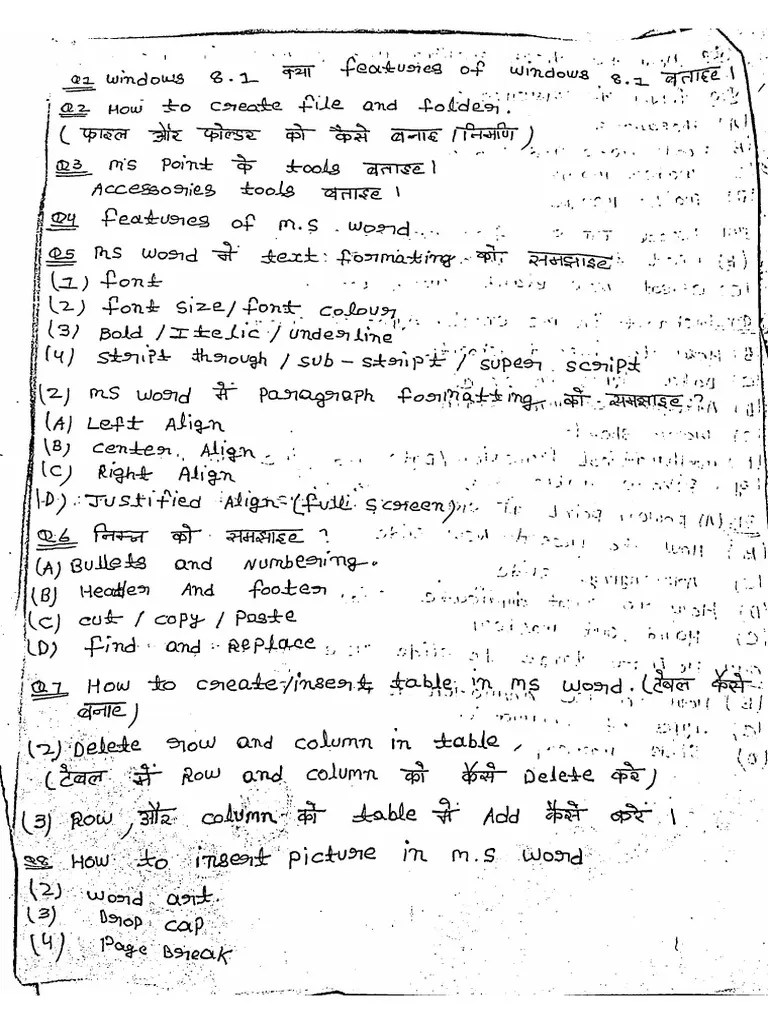 Q1 Windows 8.1 क्या features of windows 8.1 बताइए।
Q2 How to create file and folder.
( फाइल और फोल्डर को कैसे बनाइ / निर्माण )
Q3 MS Point के tools बताइए।
Accessories tools बताइए।
Q4 features of M.S. word..
Q5 MS word में text formating को समझाइए
(1) font
(2) font size/font colour
(3) Bold / Itelic / underline
(4) stript through / sub-stript / super script
(2) MS word में Paragraph formatting को समझाइए ?
(A) Left Align
(B) center Align
(C) Right Align
(D) Justified Align-(full screen)
Q.6 निम्न को समझाइए ?
(A) Bullets and Numbering.
(B) Header And footer
(C) cut / copy / Paste
(D) find and Replace
Q.7 How to create/insert table in MS word. (टेबल कैसे
बनाए)
(2) Delete row and column in table,
(टेबल में Row and column को कैसे Delete करे)
(3) Row, और column को table में Add कैसे करें।
Q8 How to insert picture in M.S word
(2) word art.
(3) Drop cap
(4) Page Break